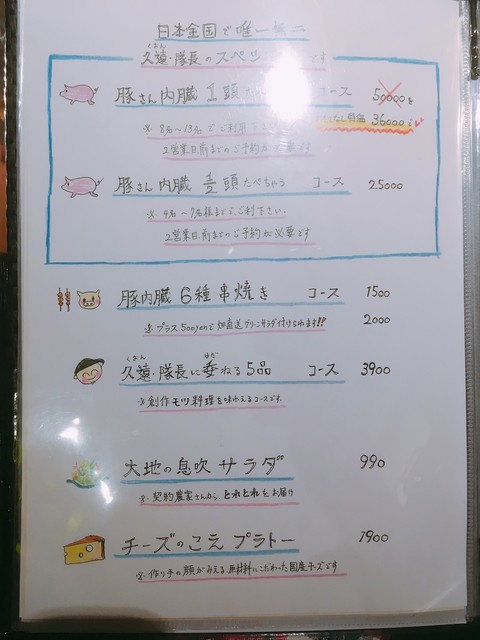 日本全国で唯一無二
くおん
久遠・隊長のスペシ です
豚さん内臓 1頭 コース 50000を
特価 36000
※ 8名〜13名でご利用下さい
2営業日前までのご予約が必要です
豚さん内臓 半頭 たべちゃう コース 25000
※ 4名〜7名様までご利用下さい。
2営業日前までのご予約が必要です
豚内臓 6種 串焼き コース 1500
※ プラス500yenで 畑直送 グリーンサラダ付けられます!! 2000
くおん ゆだ
久遠・隊長に委ねる 5品 コース 3900
※ 創作モツ料理を味わえるコースです。
大地の息吹 サラダ 990
※ 契約農家さんから、とれとれをお届け
チーズのこえ プラトー 1900
※ 作り手の顔がみえる、無料にこだわった国産チーズです